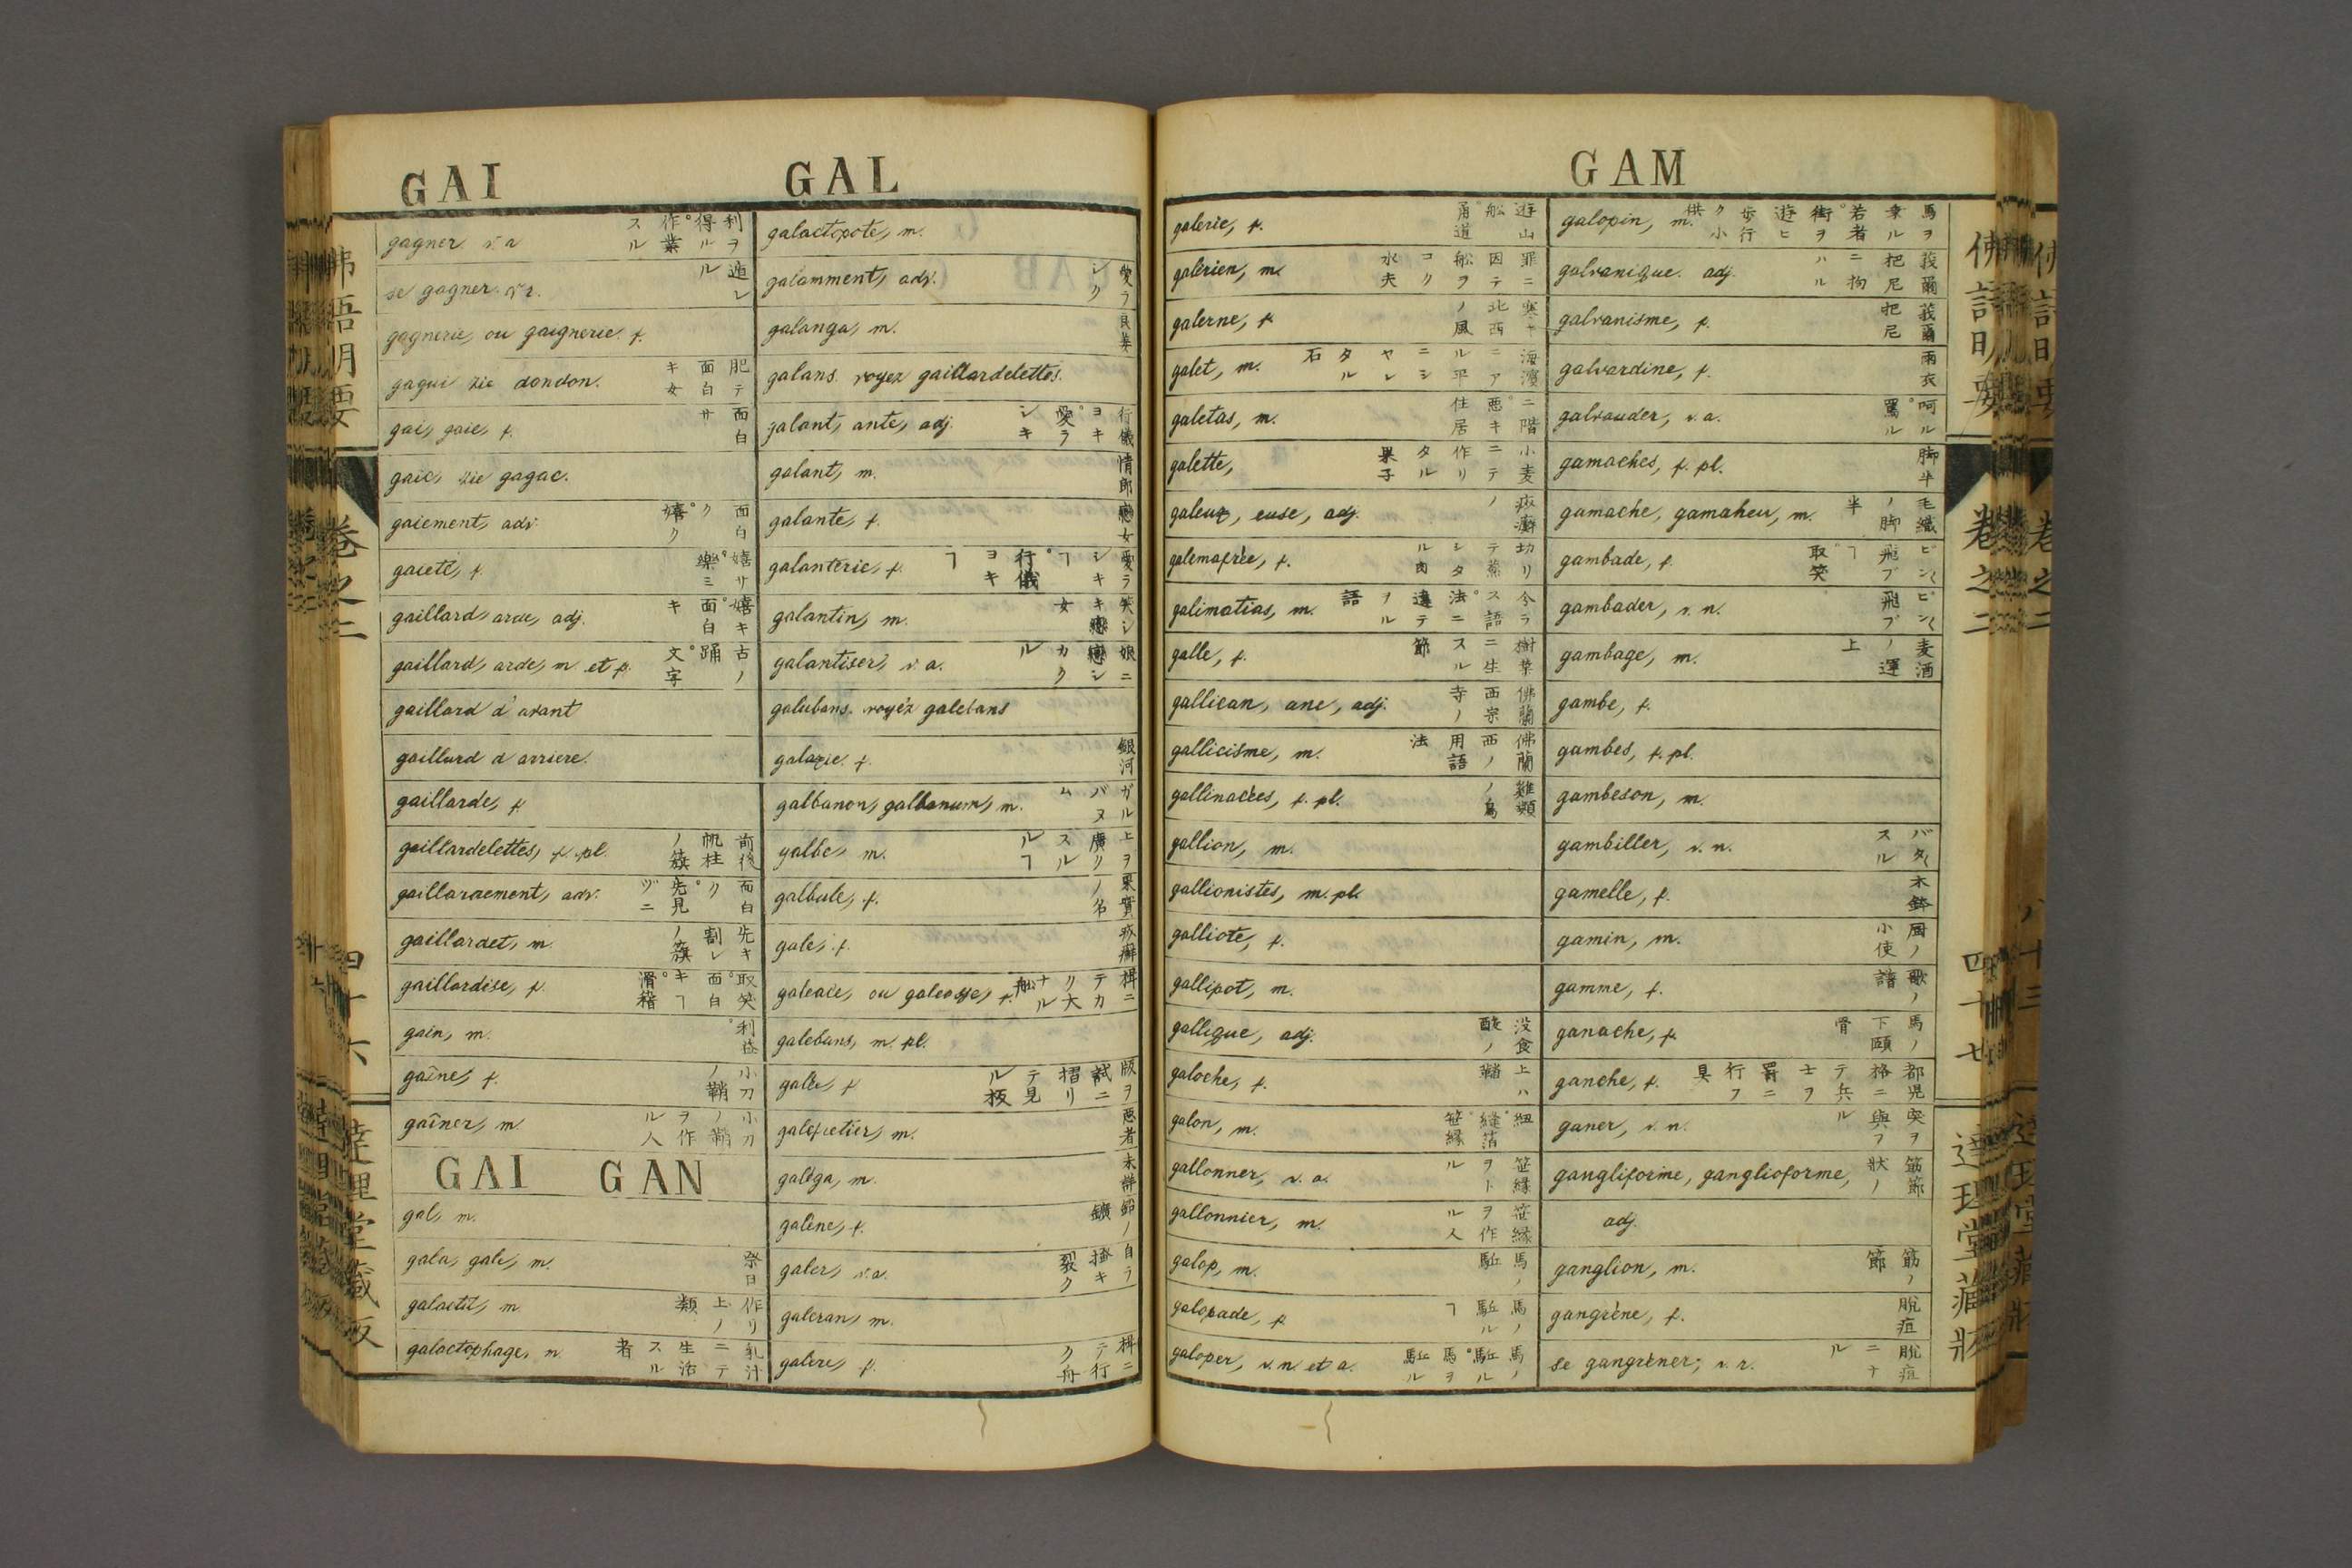 GAI GAL
佛語明要 卷之二 四十六 達理堂藏版
gagner v. a 利ヲ得ル。作業スル
se gagner. v. r. 遁レル
gagnerie, ou gaignerie. f.
gagui zie dondon. 肥テ面白キ女
gai, gaie, f. 面白サ
gaic, zie gagac.
gaiement, adv. 面白ク。嬉ク
gaieté, f. 嬉サ。樂ミ
gaillard, arde, adj. 嬉キ。面白キ
gaillard, arde, m. et f. 古ノ踊。文字
gaillard d'avant
gaillard d arriere.
gaillarde, f.
gaillardelettes, f. pl. 前後帆柱ノ籏
gaillardement, adv. 面白ク。先見ヅニ
gaillardet, m. 先キ割レノ籏
gaillardise, f. 取笑。面白キヿ。滑稽
gain, m. 利益
gaîne, f. 小刀ノ鞘
gaîner, m. 小刀ノ鞘ヲ作ル人
GAI GAN
gal, m.
gala, gale, m. 祭日
galactit, m. 作リ上ノ類
galactophage, m. 乳汁ニテ生活スル者
galactopote, m.
galamment, adv. 愛ラシク
galanga, m. 良薑
galans. voyez gaillardelettes.
galant, ante, adj. 行儀ヨキ。愛ラシキ
galant, m. 情郎
galante, f. 戀女
galanterie, f. 愛ラシキヿ。行儀ヨキヿ
galantin, m. 笑シキ戀女
galantiser, v. a. 娘ニ戀シカクル
galubans. voyéz galebans
galaxie. f. 銀河
galbanon, galbanum, m. ガルバヌム
galbe, m. 上ヲ廣リスルルヿ
galbule, f. 果實ノ名
gale, f. 疥癬
galeace, ou galeasse, f. 楫ニテカリ大ナル舩
galebans, m. pl.
galée, f. 版ヲ試ニ摺リテ見ル板
galefretier, m. 悪者
galéga, m. 未詳
galène, f. 鉛ノ鑛
galer, v. a. 自ラ搔キ裂ク
galeran, m.
galere, f. 楫ニテ行ク舟
GAM
galerie, f. 遊山舩。甬道
galérien, m. 罪ニ因テ船ヲコク水夫
galerne, f. 寒キ北西ノ風
galet, m. 海濱ニアル平ニシヤレタル石
galetas, m. 二階。悪キ住居
galette, 小麦ニテ作リタル果子
galeux, euse, adj. 疥癬ノ
galemafrée, f. 切リテ蒸シタル肉
galimatias, m. 今ラス語。法ニ違テヲル語
galle, f. 樹草ニ生スル節
gallican, ane, adj. 佛蘭西宗寺ノ
gallicisme, m. 佛蘭西ノ用語法
gallinacées, f. pl. 雞類ノ鳥
gallion, m.
gallionistes, m. pl.
galliote, f.
gallipot, m.
gallique, adj. 没食酸ノ
galoche, f. 上ハ鞜
galon, m. 紐。縫箔。笹縁
gallonner, v. a. 笹縁ヲトル
gallonnier, m. 笹縁ヲ作ル人
galop, m. 馬ノ駈
galopade, f. 馬ノ駈ルヿ
galoper, v. n. et a. 馬ノ駈ル。馬ヲ駈ル
galopin, m. 馬ヲ乗ル若者。街ヲ遊ヒ歩行ク小供
galvanique. adj. 莪爾把尼ニ拘ハル
galvanisme, f. 莪爾把尼
galvardine, f. 雨衣
galvauder, v. a. 呵ル。罵ル
gamaches, f. pl. 脚半
gamache, gamaheu, m. 毛織ノ脚半
gambade, f. ピン〱飛ブヿ。取笑
gambader, v. n. ピン〱飛ブ
gambage, m. 麦酒ノ運上
gambe, f.
gambes, f. pl.
gambeson, m.
gambiller, v. n. バタ〱スル
gamelle, f. 木鉢
gamin, m. 小使
gamme, f. 歌ノ譜
ganache, f. 馬ノ下頤骨
ganche, f. 都児格ニテ兵士ヲ罰ニ行フ具
ganer, v. n. 突ヲ與フル
gangliforme, ganglioforme, adj. 筋節状ノ
ganglion, m. 筋ノ節
gangrène, f. 脱疽
se gangréner, v. r. 脱疽ニナル
佛語明要 卷之二 四十七 達理堂藏版